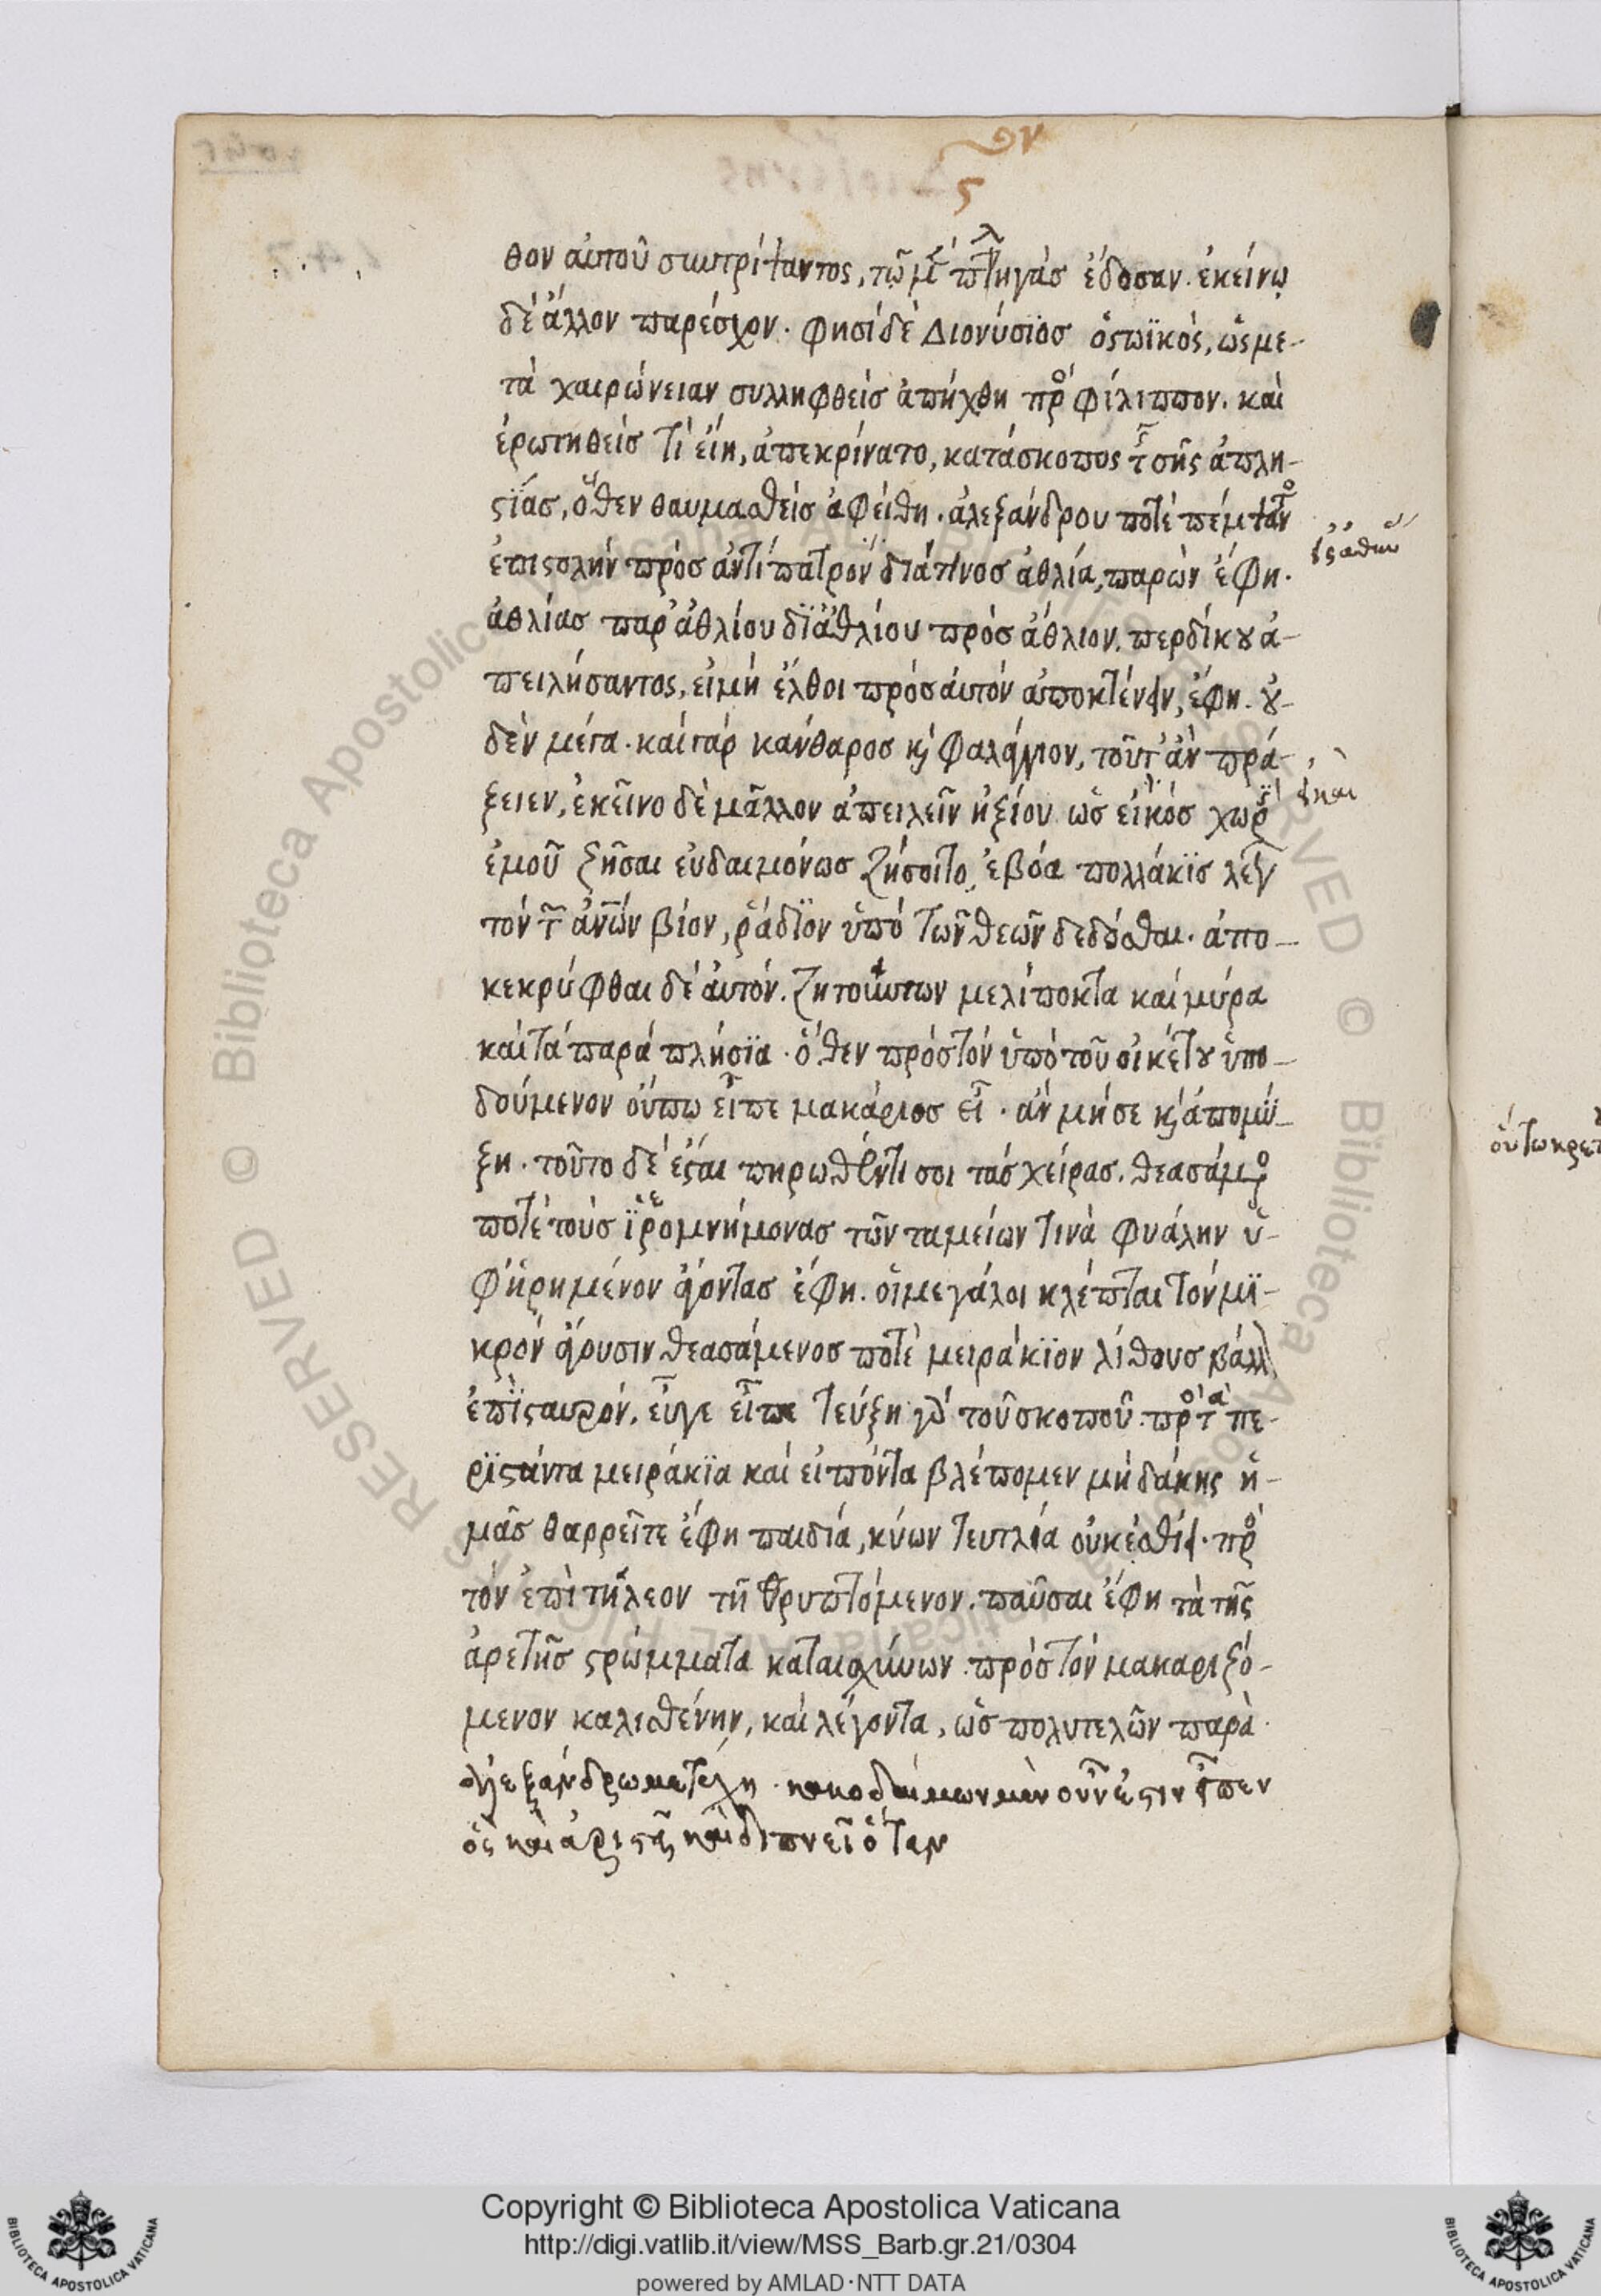 θον αὐτοῦ συντρίψαντος, τῷ μ̅ πληγὰσ ἔδοσαν. ἐκείνῳ
δὲ ἄλλον παρέσχον. φησὶ δὲ Διονύσϊος ὁ στωϊκὸς, ὡς με-
τὰ χαιρώνειαν συλληφθεὶσ ἀπήχθη πρὸ φίλιππον. καὶ
ἐρωτηθεὶσ τί εἴη, ἀπεκρίνατο, κατάσκοπος τ̅ σῆς ἀπλη-
στΐασ, ὅθεν θαυμασθεὶσ ἀφείθη. ἀλεξάνδρου ποτὲ πέμψαντο
ἐπιστολὴν πρὸσ ἀντίπατρον διά τινοσ ἀθλία, παρὼν ἔφη.
ἀθλίασ παρ' ἀθλίου δϊ' ἀθλίου πρὸσ ἄθλιον. περδίκου ἀ-
πειλήσαντος, εἰ μὴ ἔλθοι πρὸσ αὐτὸν ἀποκτένειν, ἔφη. οὐ-
δὲν μέγα. καὶ γὰρ κάνθαροσ κ̀ φαλάγγιον, τοῦτ' ἂν πρά-
ξειεν, ἐκεῖνο δὲ μᾶλλον ἀπειλεῖν ἠξίου ὡσ εἰκὸσ χωρ
ἐμοῦ ζῆσαι εὐδαιμόνωσ ζήσοιτο. ἐβόα πολλάκϊσ λέγ
τὸν τ̅ ἀνῶν βίον, ῥάδϊον ὑπὸ τῶν θεῶν δεδόσθαι. ἀπο-
κεκρύφθαι δὲ αὐτὸν. ζητούντων μελίπηκτα καὶ μύρα
καὶ τὰ παραπλήσϊα. ὅθεν πρὸσ τὸν ὑπὸ τοῦ οἰκέτου ὑπο-
δούμενον οὔπω εἶπε μακάριοσ εἶ. ἂν μή σε κ̀ ἀπομύ-
ξη. τοῦτο δὲ ἔσται πηρωθέντι σοι τὰσ χείρασ. θεασάμεο
ποτὲ τοὺσ ἱερομνήμονασ τῶν ταμείων τινὰ φυάλην ὑ-
φῃρημένον ἄγοντασ ἔφη. οἱ μεγάλοι κλέπται τὸν μϊ-
κρὸν ἄγουσιν θεασάμενοσ ποτὲ μειράκϊον λίθουσ βάλλ
ἐπϊ σταυρόν. εὖγε εἶπε τεύξη γὰ τοῦ σκοποῦ. πρὸ τ̀ὰ πε-
ρϊστάντα μειράκϊα καὶ εἰπόντα βλέπομεν μὴ δάκης ἡ-
μᾶσ θαρρεῖτε ἔφη παιδία, κύων τευτλία οὐκ ἐσθίει. πρὸ
τὸν ἐπὶ τῆ λεον τῆ θρυπτόμενον. παῦσαι ἔφη τὰ τῆς
ἀρετῆσ στρώμματα καταισχύνων. πρὸσ τὸν μακαριζό-
μενον καλισθένην, καὶ λέγοντα, ὡσ πολυτελῶν παρὰ
ἀλεξάνδρω μετέχη. κακοδαίμων μὲν οὖν ἐστιν εἶπεν
ὃς καὶ ἀριστᾶ καὶ δειπνεῖ ὅταν